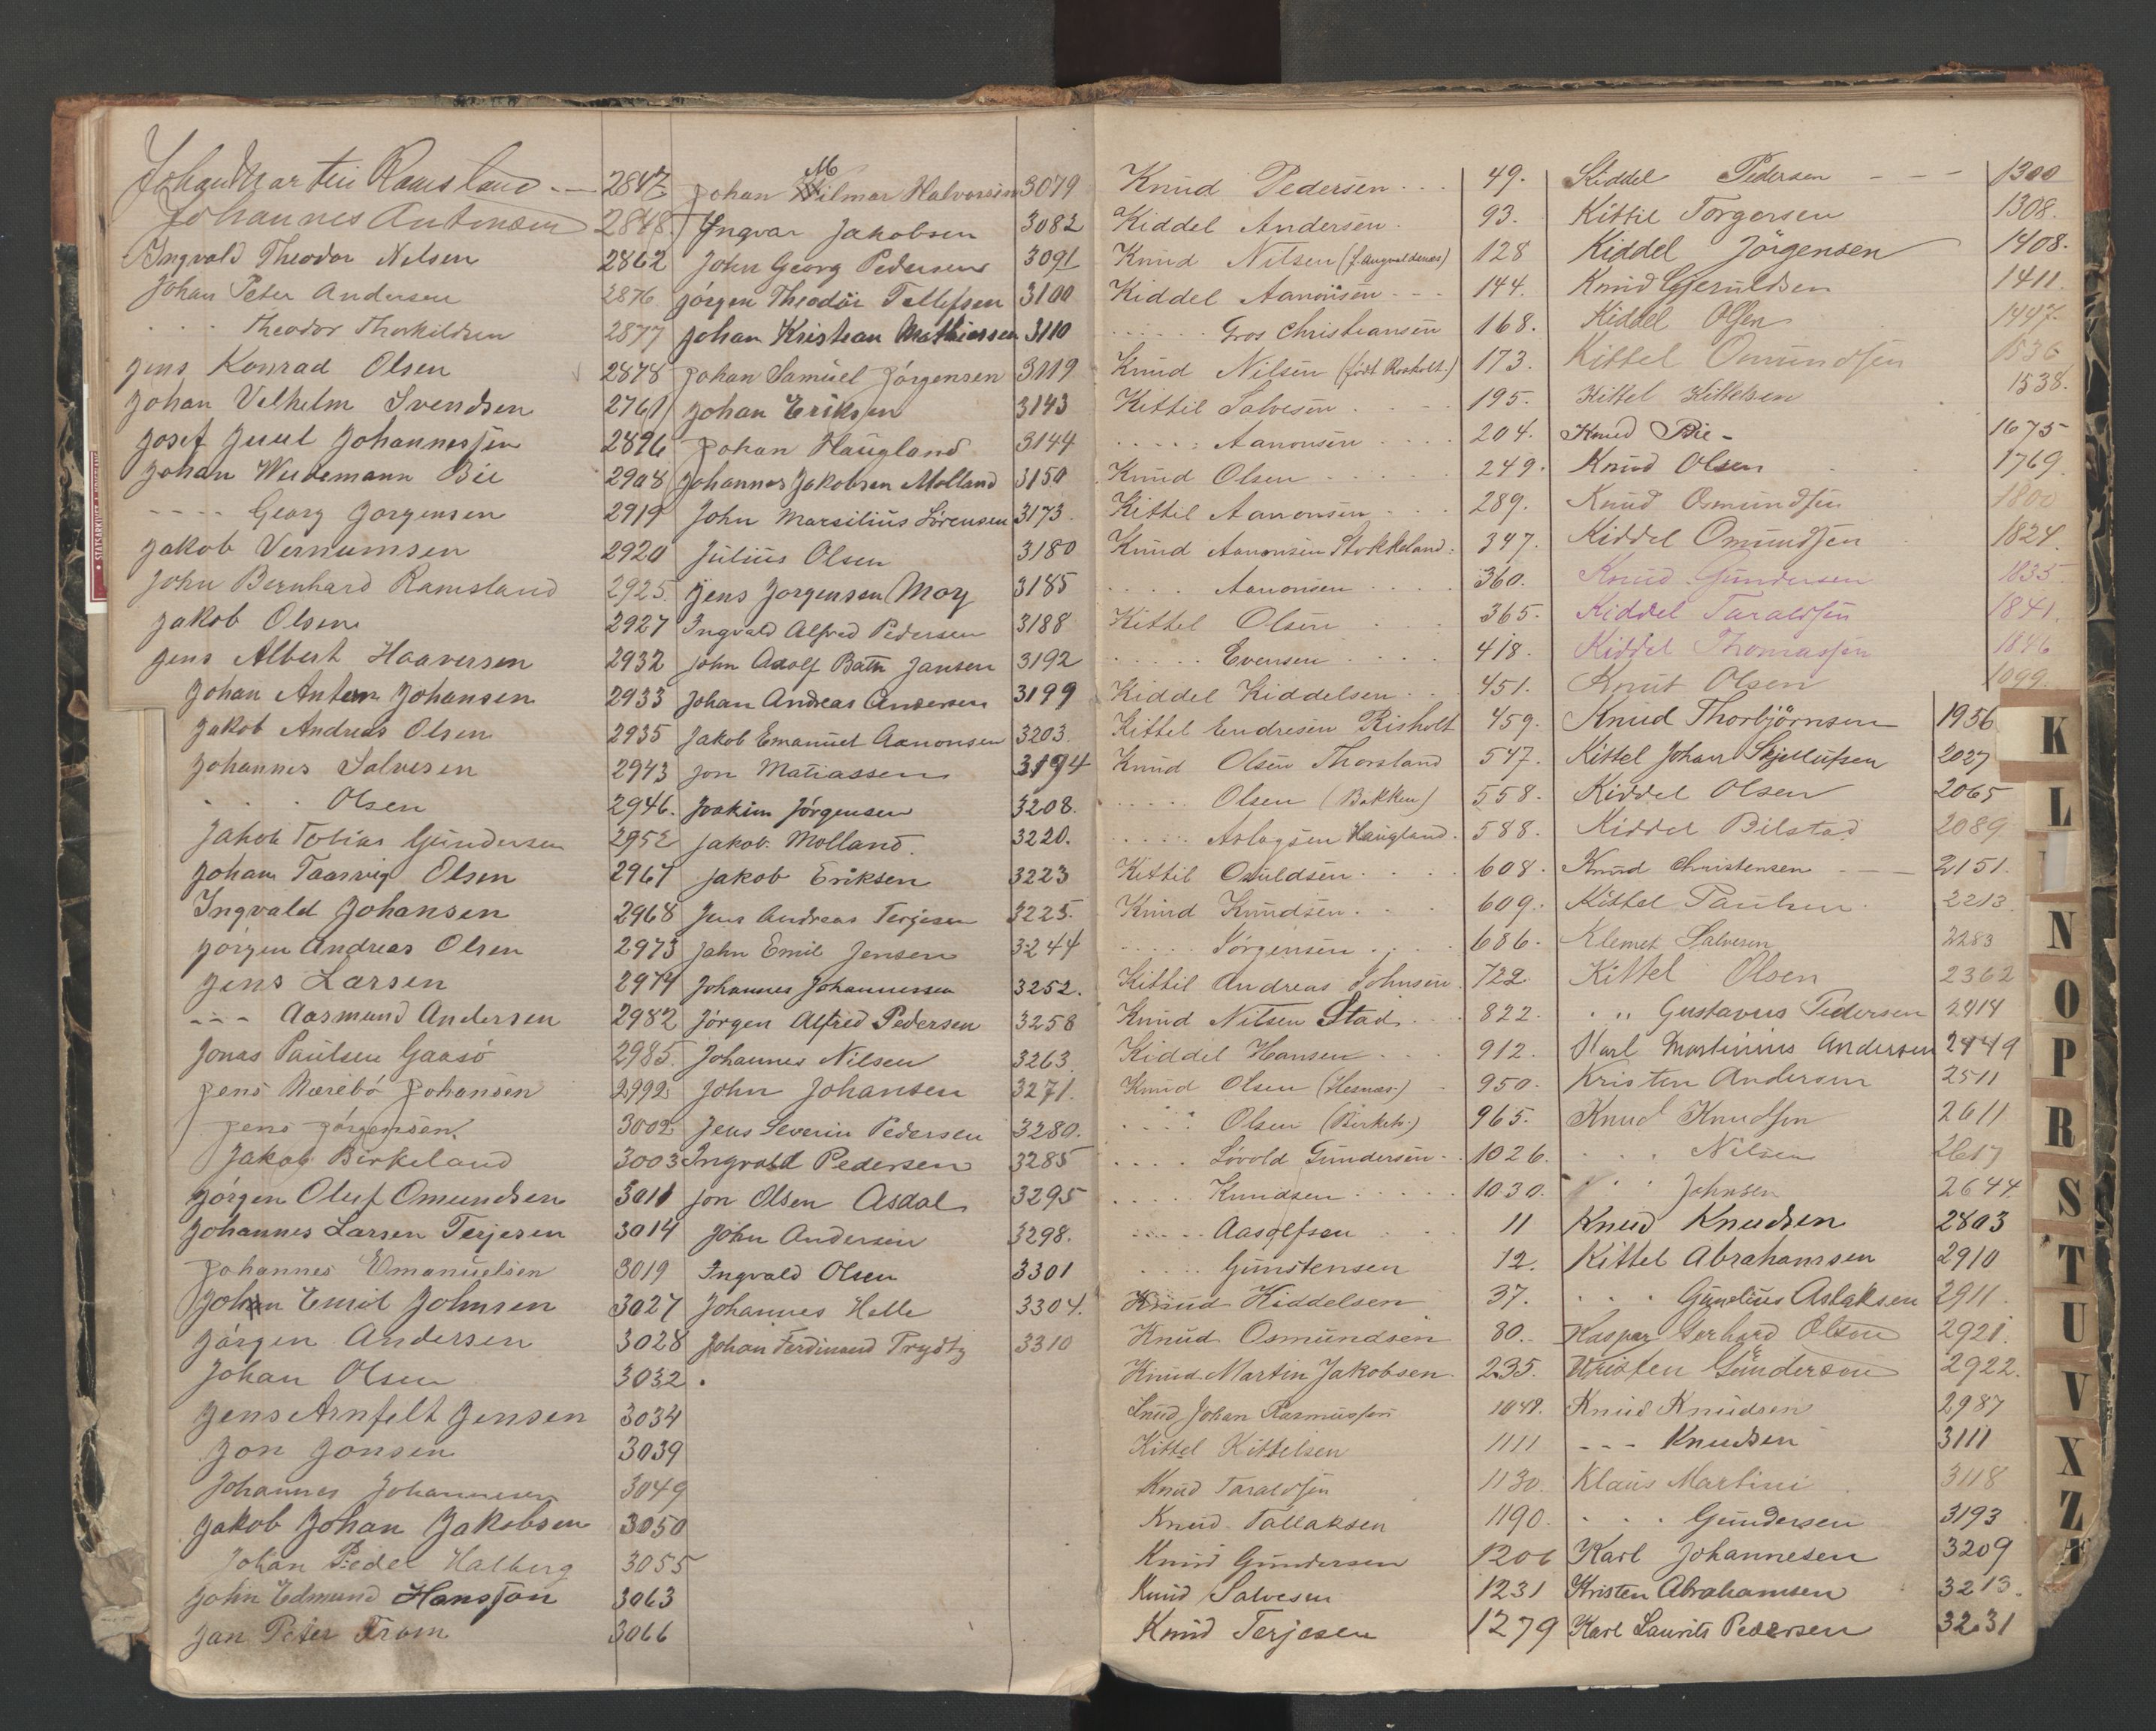 Johan Martin Ramsland -- 2847
Johannes Antonsen 2848
Ingvald Theodor Nilsen 2862
Johan Peter Andersen 2876
. . . Theodor Thorkildsen 2877
Jens Konrad Olsen 2878
Johan Vilhelm Svendsen 2761
Josef Juul Johannessen 2896
Johan Weidemann Bie 2908
---- Georg Jorgensen 2919
Jakob Vernumsen 2920
John Bernhard Ramsland 2925.
Jakob Olsen 2927
Jens Albert Haaversen 2932
Johan Anton Johansen 2933
Jakob Andreas Olsen 2935
Johannes Salvesen 2943
. . . Olsen 2946.
Jakob Tobias Gundersen 2952
Johan Taarvig Olsen 2967
Ingvald Johansen 2968
Jörgen Andreas Olsen 2973
Jens Larsen 2974
--- Aasmund Andersen 2982
Jonas Paulsen Gaasö 2985.
Jens Nærebö Johansen 2992
Jens Jörgensen. 3002
Jakob Birkeland 3003
Jörgen Oluf Omundsen 3011
Johannes Larsen Terjesen 3014
Johannes Emanuelsen 3019
Johan Emil Johnsen 3027
Jörgen Andersen 3028
Johan Olsen 3032
Jens Arnfelt Jensen 3034
Jon Jonsen 3039
Johannes Johannesen 3049
Jakob Johan Jakobsen 3050
Johan Peder Halberg 3055
John Edmund Hansson 3063
Jan Peter From 3066
Johan Hilmar Halvorsen 3079
M
Ingvar Jakobsen 3082
John Georg Pedersen 3091
Jörgen Theodor Tellefsen 3100
Johan Kristian Mathiassen 3110
Johan Samuel Jörgensen 3119
Johan Eriksen 3143
Johan Haugland 3144
Johannes Jakobsen Molland 3150
John Marsilius Sörensen 3173.
Julius Olsen 3180
Jens Jorgensen Moy 3185
Ingvald Alfred Pedersen 3188
John Adolf Jansen 3192
Johan Andreas Andersen 3199
Jakob Emanuel Aanonsen 3203.
Jon Matiassen 3194
Joakim Jörgensen 3208.
Jakob Molland. 3220.
Jakob Eriksen 3223
Jens Andreas Terjesen 3225.
John Emil Jensen 3244
Johannes Johannessen 3252.
Jörgen Alfred Pedersen 3258
Johannes Nilsen 3263.
John Johansen 3271.
Jens Severin Pedersen 3280.
Ingvald Pedersen 3285
Jon Olsen Asdal 3295
John Andersen 3298.
Ingvald Olsen 3301
Johannes Helle 3304.
Johan Ferdinand Trydtz 3310
Knud Pedersen . . . 49.
Kiddel Andersen . 93.
Knud Nilsen 128
Kiddel Aanonsen - - - 144.
. . . . . Gros Christiansen 168.
Knud Nilsen (født Rosholt.) 173.
Kittil Salvesen . . . 195.
. . . . : Aanonsen . . . . 204.
Knud Olsen . . . . . 249.
Kittil Aanonsen . . . 289.
Knud Aanonsen Stokkeland. 347.
. . . . Aanonsen . . . . 360.
Kittel Olsen . . . 365.
. . . . . Evensen . . . . 418.
Kiddel Kiddelsen . . . 451.
Kittel Endresen Risholt 459.
Knud Olsen Thorsland 547.
. . . . . Olsen (Bakken) 558.
. . . . . Aslagsen Haugland . 588.
Kittil Osuldsen . . . . 608.
Knud Knudsen . . . . 609.
. . . . . Jörgensen . . . . 686.
Kittil Andreas Johnsen . 722.
Knud Nilsen Stad . . . 822.
Kiddel Hansen . . . 912.
Knud Olsen (Hesnæs.) . 950.
. . . . Olsen (Birkel.) 965.
. . . . Lövold Gundersen . . 1026.
. . . . . Knudsen . . . . . 1030.
. . . . . Aasolfsen . . . 11
. . . . Gunstensen 12.
Knud Kiddelsen 37.
Knud Osmundsen 80.
Knud Martin Jakobsen. 235.
Knud Johan Rasmussen 1048.
Kittel Kittelsen 1111
Knud Taraldsen 1130.
Knud Tallaksen 1190.
Knud Gundersen 1206
Knud Salvesen 1231
Knud Terjesen 1279
Kiddel Pedersen - - - 1300
Kittil Torgersen 1308.
Kiddel Jörgensen 1408.
Knud Gjeruldsen 1411.
Kiddel Olsen 1447.
Kittel Omundsen 1536
Kittel Kittelsen 1538.
Knud Bie - 1675
Knud Olsen 1769.
Knud Osmundsen 1800
Kiddel Omundsen 1824.
Knud Gundersen 1835
Kiddel Taraldsen 1841.
Kiddel Thomassen 1846
Knut Olsen 1099.
Knud Thorbjörnsen 1956
Kittel Johan Skjellufsen 2027
Kiddel Olsen 2065
Kiddel Bilstad 2089
Knud Christensen - - 2151.
Kittel Paulsen 2213
Klemet Salvesen 2283
Kittel Olsen 2362
. . Gustavus Pedersen 2414
Karl Martinius Andersen 2449
Kristen Andersen 2511
Knud Knudsen 2611
. . . Nilsen 2617
. . . Johnsen 2644
Knud Knudsen 2803
Kittel Abrahamsen 2910
. . . Gundius Aslaksen 2911.
Kaspar Gerhard Olsen 2921.
Kristen Gundersen 2922.
Knud Knudsen 2987
--- Knudsen 3111
Klaus Martini 3118
. . . Gundersen 3193
Karl Johannesen 3209
Kristen Abrahamsen 3213.
Karl Laurits Pedersen 3231
K
L
N
O
P
R
S
T
U
V
X
Z
STATSARKIVET